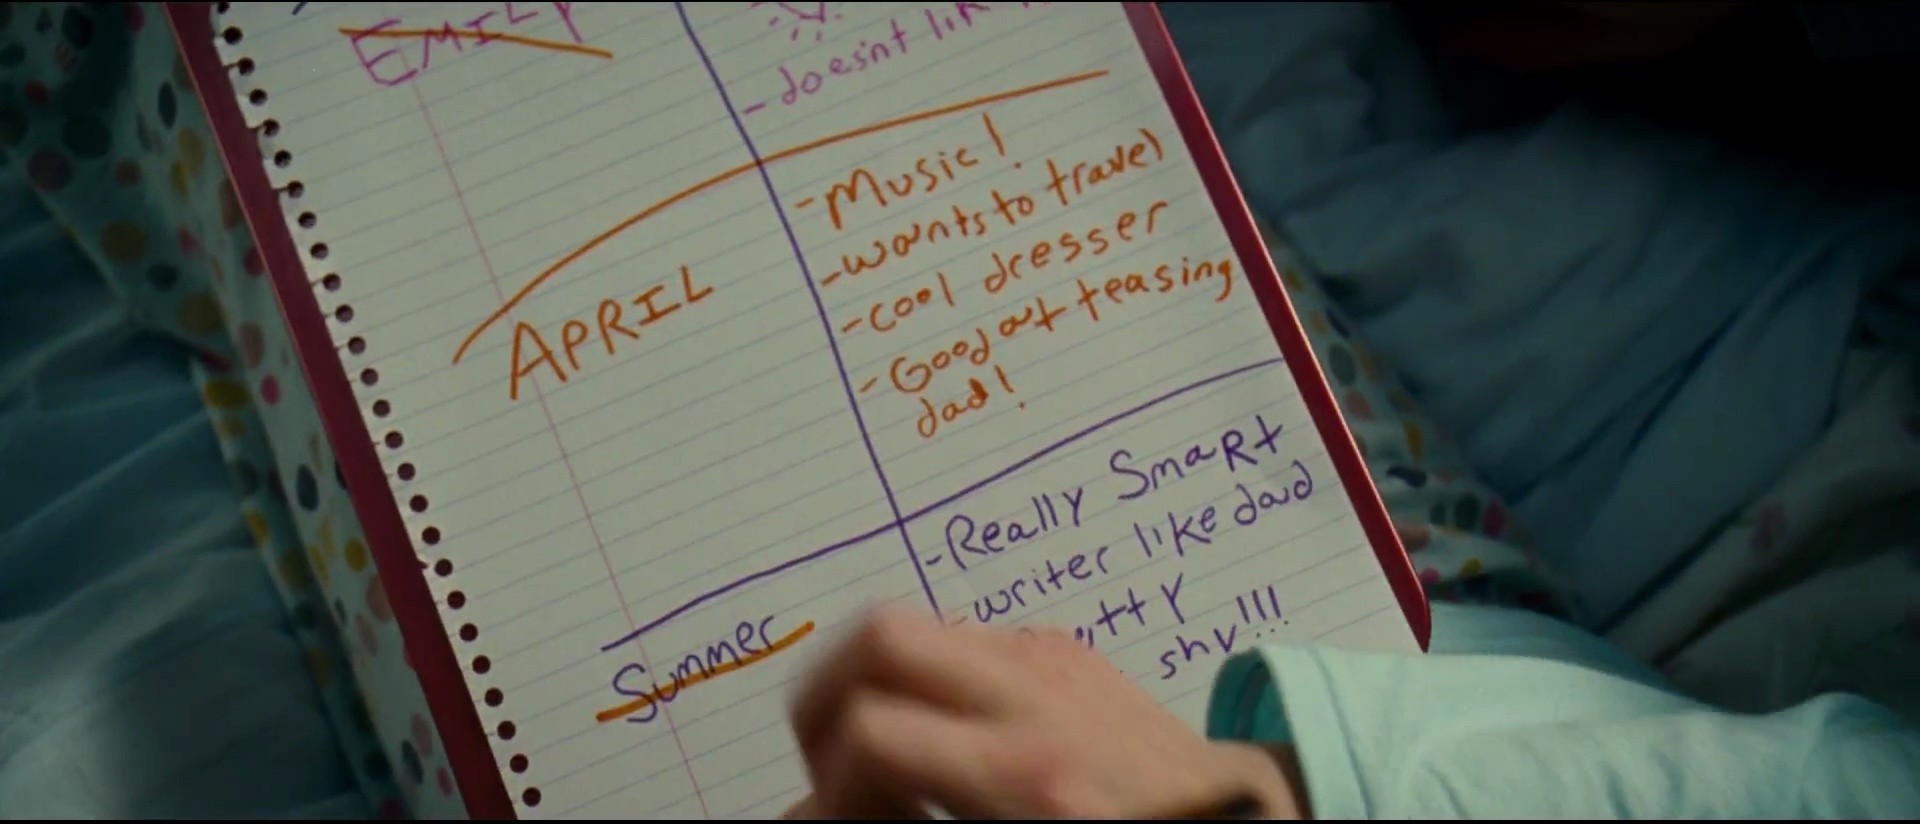 EMILY
- doesnt
APRIL
- Music!
- wants to travel
- cool dresser
- Good at teasing
dad!
Summer
- Really Smart
- writer like dad
shy!!!